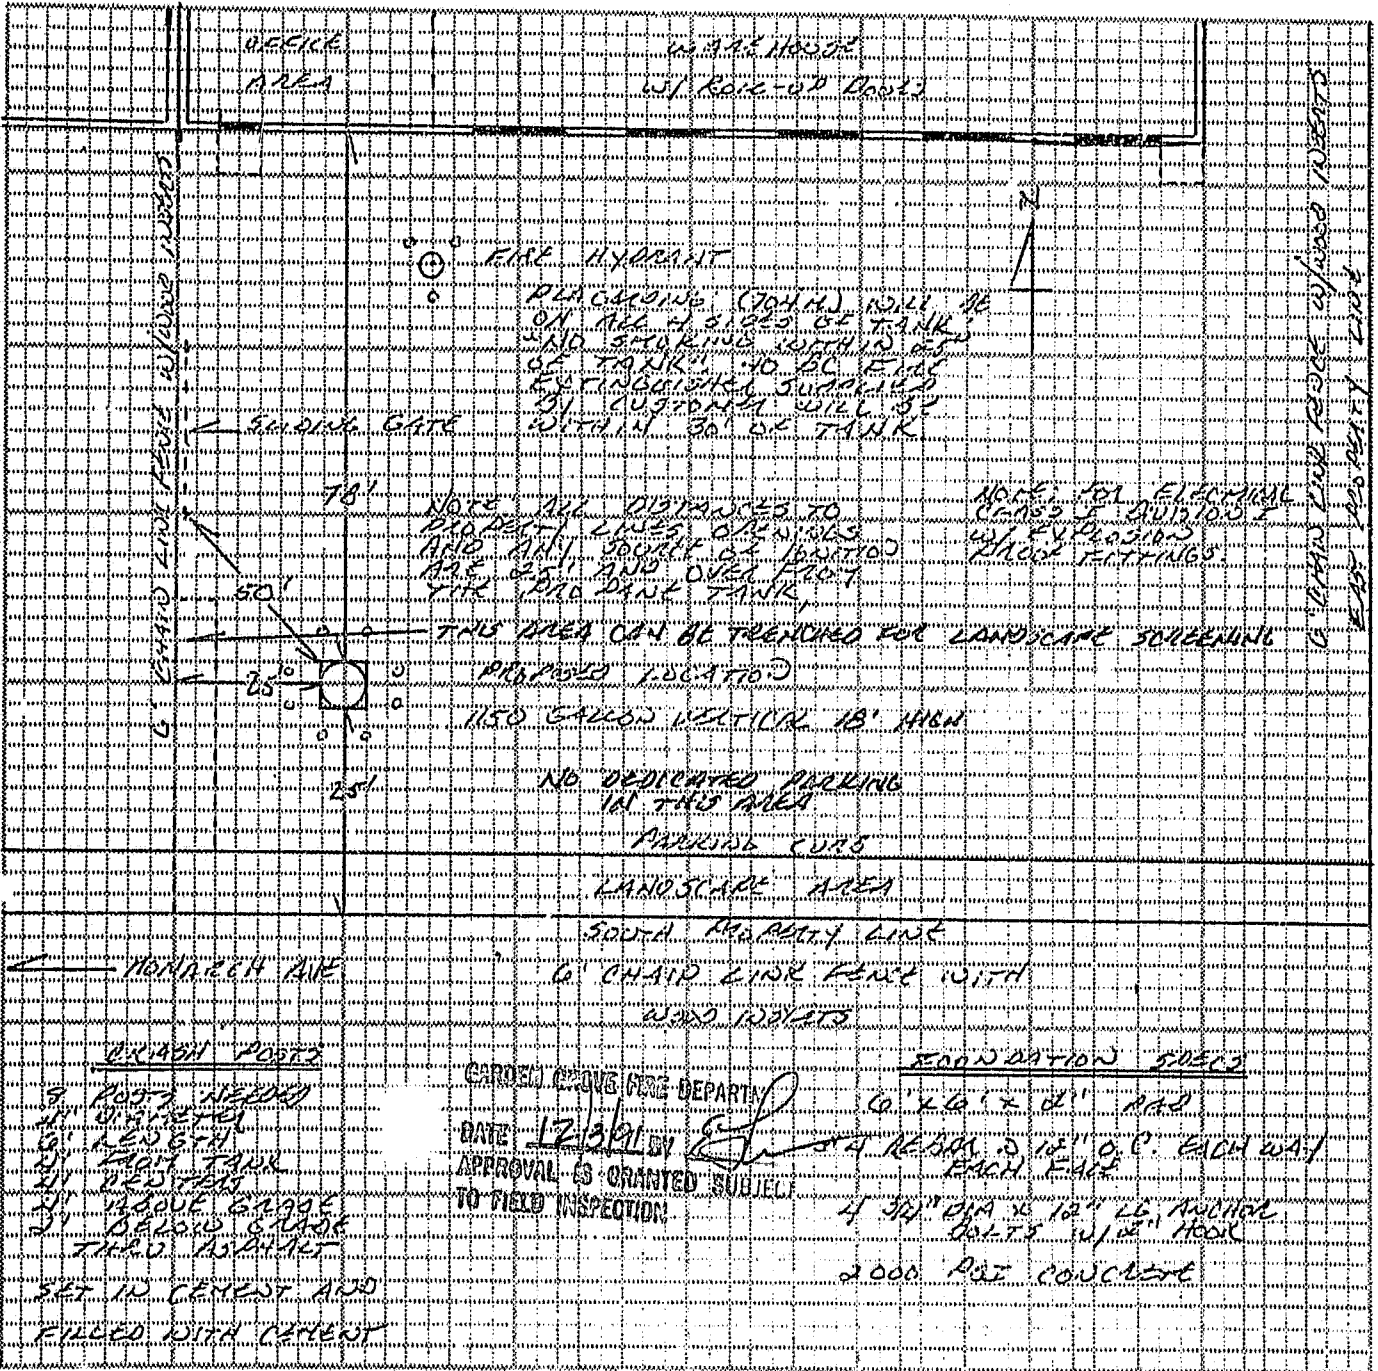 OFFICE
AREA
WAREHOUSE
W/ ROLL-UP DOORS
6' CHAIN LINK FENCE W/WOOD INSERTS
6' CHAIN LINK FENCE W/WOOD INSERTS
EAST PROPERTY LINE
N
FIRE HYDRANT
PLACARDING (704M) WILL BE
ON ALL 4 SIDES OF TANK
"NO SMOKING WITHIN 25'
OF TANK". 40 BC FIRE
EXTINGUISHER SUPPLIED
BY CUSTOMER WILL BE
WITHIN 30' OF TANK
SLIDING GATE
78'
NOTE: ALL DISTANCES TO
PROPERTY LINES OPENINGS
AND ANY SOURCE OF IGNITION
ARE 25' AND OVER FROM
THE PROPANE TANK,
NOTE: FOR ELECTRICAL
CLASS I DIVISION I
W/ EXPLOSION
PROOF FITTINGS.
50'
THIS AREA CAN BE TRENCHED FOR LANDSCAPE SCREENING
25'
PROPOSED LOCATION
1150 GALLON VERTICAL 18' HIGH
25'
NO DEDICATED PARKING
IN THIS AREA
PARKING CURB
LANDSCAPE AREA
SOUTH PROPERTY LINE
MONARCH AVE
6' CHAIN LINK FENCE WITH
WOOD INSERTS
CRASH POSTS
8 POSTS NEEDED
4" DIAMETER
6' LENGTH
4' FROM TANK
4' CENTERS
4' ABOVE GRADE
2' BELOW GRADE
THRU ASPHALT
SET IN CEMENT AND
FILLED WITH CEMENT
GARDEN GROVE FIRE DEPARTM
DATE 12/3/91 BY
APPROVAL IS GRANTED SUBJECT
TO FIELD INSPECTION
FOUNDATION SPECS
6' x 6' x PAD
#4 REBAR @ 12" O.C. EACH WAY
EACH FACE
4 3/4" DIA x 12" LG ANCHOR
BOLTS W/ 2" HOOK
2000 PSI CONCRETE